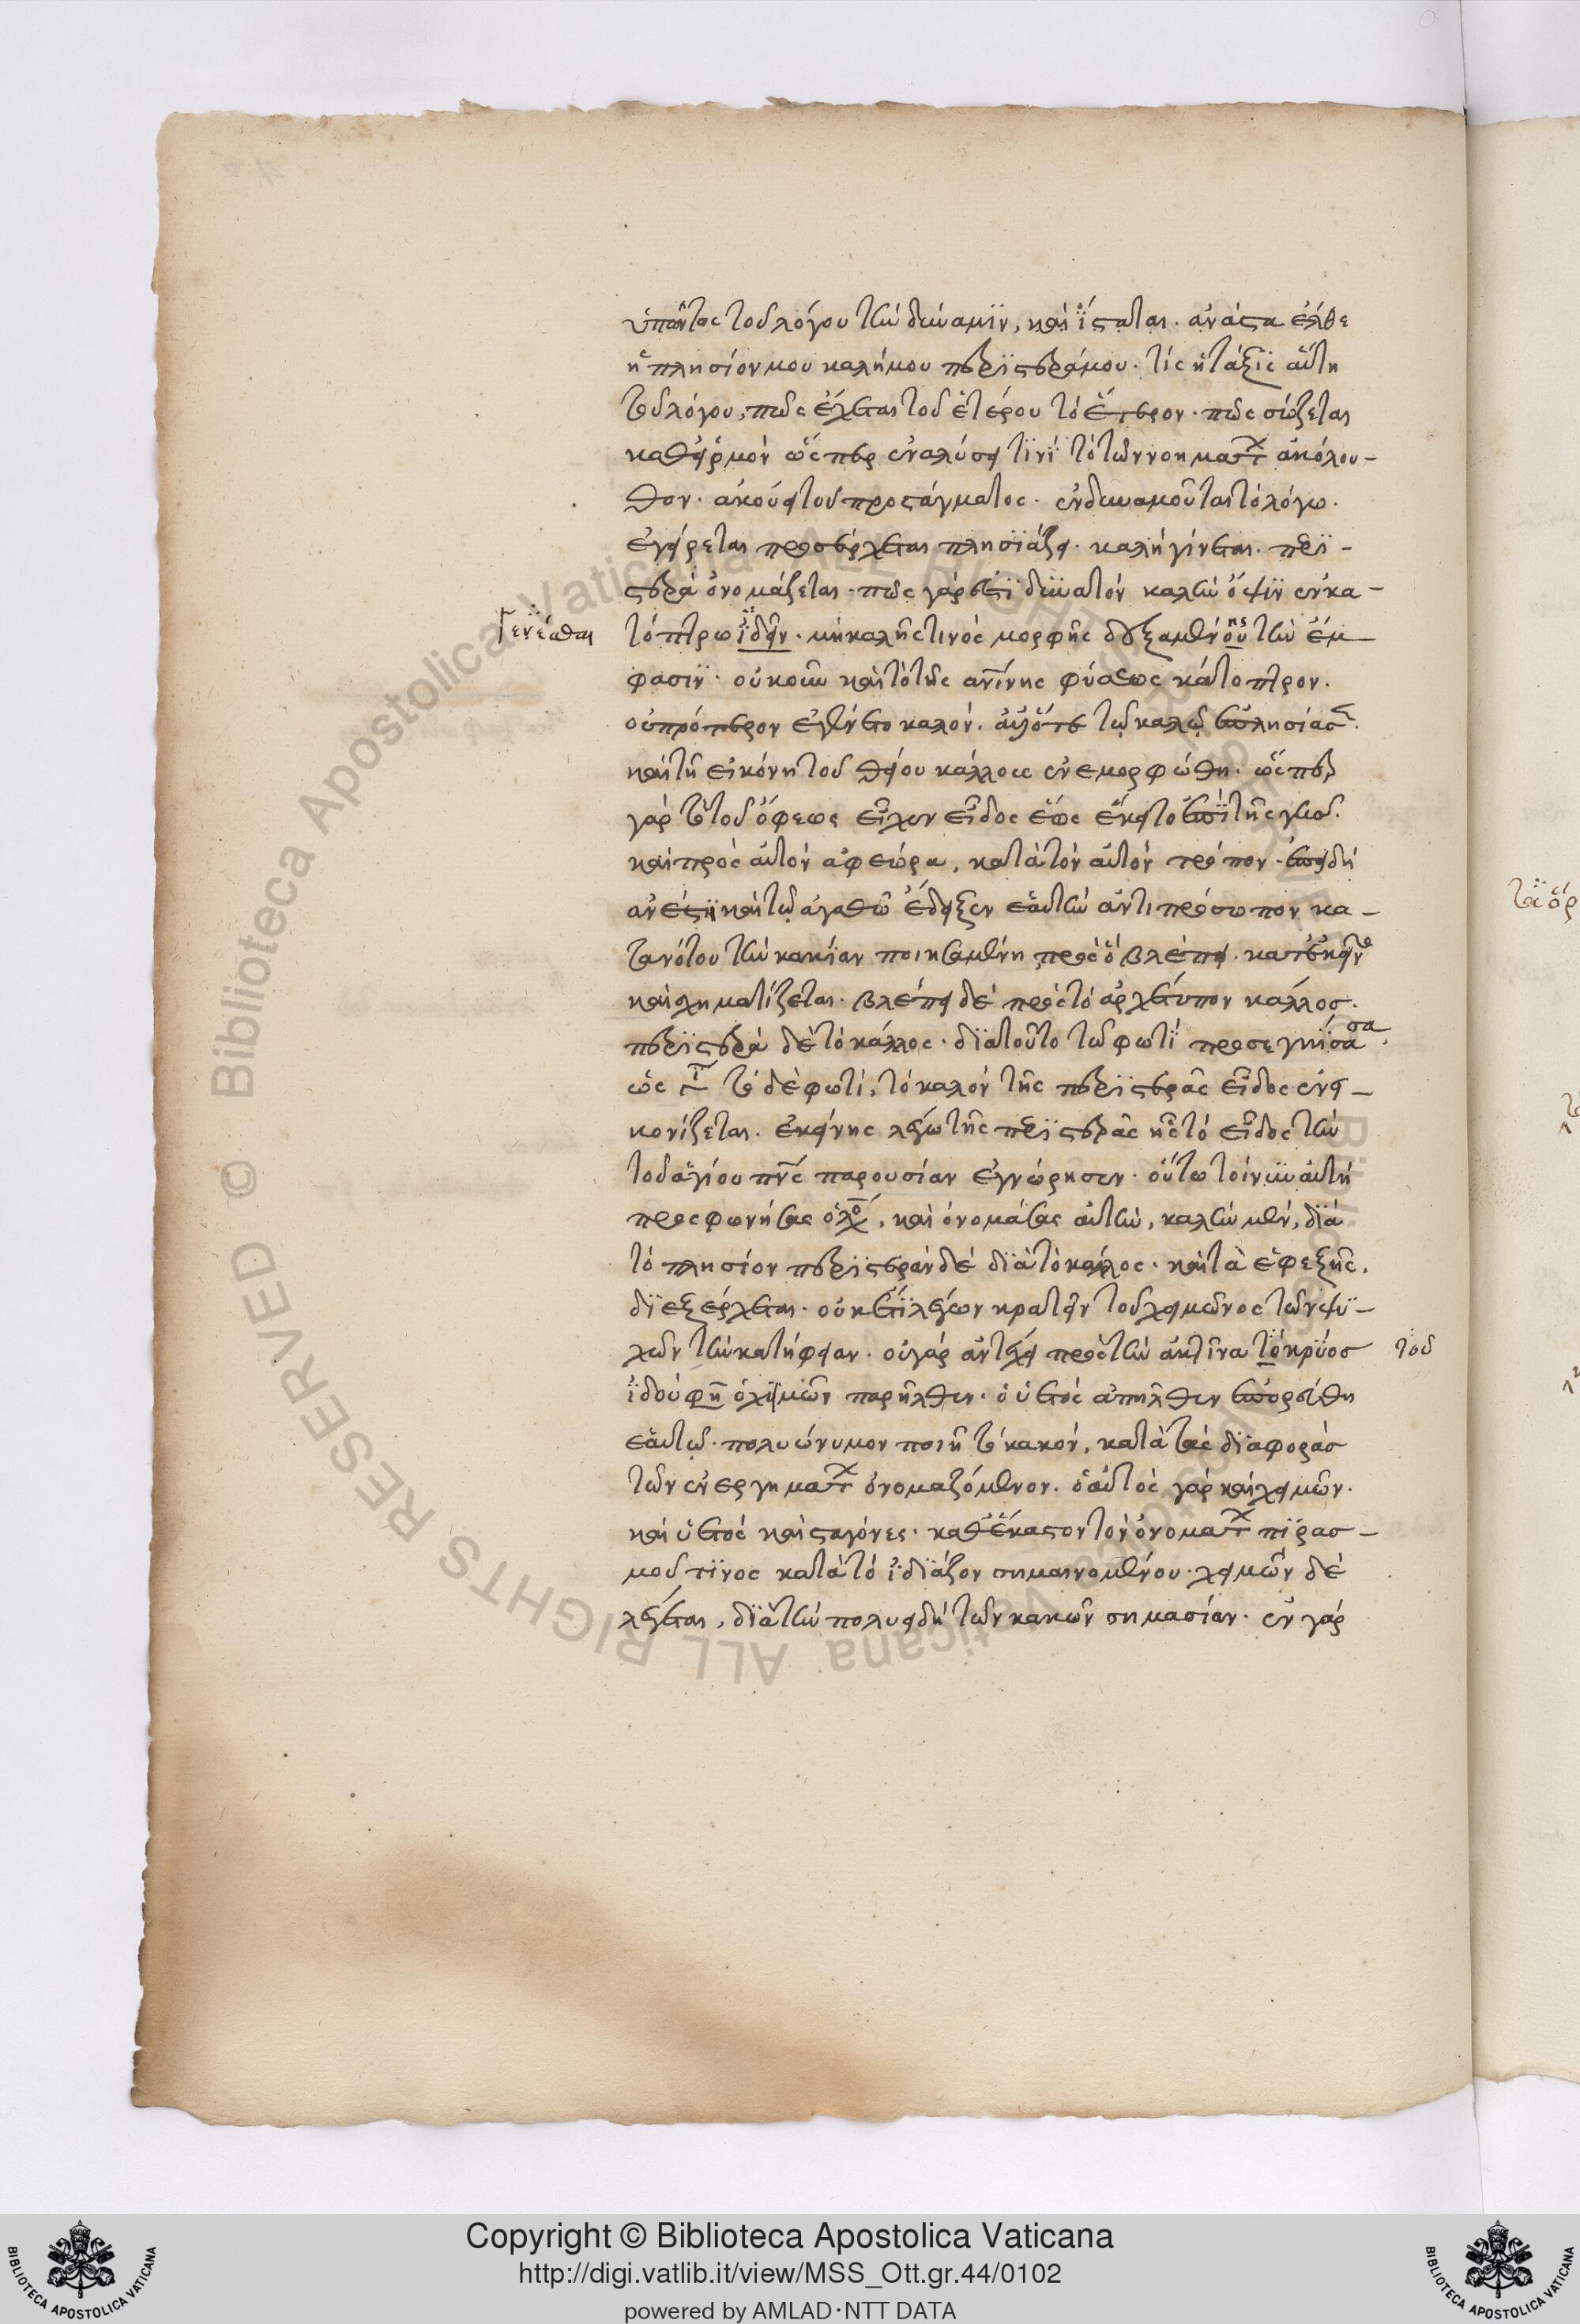 ὑπόντος τοῦ λόγου τὴν δύναμϊν, καὶ ἵσταται. ἀνάστα ἐλθε
ἡ πλησίον μου καλήμου περϊστεράμου. τίς ἡ τάξϊς αὕτη
τοῦ λόγου, πῶς ἔχεται τοῦ ἑτέρου τὸ ἕτερον. πῶς σώζεται
καθειρμὸν ὥσπερ ἐναλύσει τϊνϊ τὸ τῶν νοημάτ ἀκόλου-
θον. ἀκούει τοῦ προστάγματος. ἐνδυναμοῦται τὸ λόγω.
ἐγείρεται προσέρχεται πλησϊάζει. καλὴ γίνεται. περϊ-
στερὰ ὀνομάζεται. πῶς γάρ ἐστϊ δυνατὸν καλὴν ὄψϊν ἐν κα-
Γενέσθαι
τόπτρω ἰδεῖν. μὴ καλῆς τινὸς μορφῆς δεξαμένου τὴν ἔμ-
φασϊν. οὐκοῦν καὶ τὸ τῆς ἀνϊνης φύσεως κάτοπτρον.
οὐ πρότερον ἐγένετο καλὸν. ἀλλ' ὅτε τῷ καλῷ ἐπλησίασε.
καὶ τῆ εἰκόνη τοῦ θείου κάλλους ἐνεμορφώθη. ὥσπερ
γὰρ τὸ τοῦ ὄφεως εἶχεν εἶδος ἕως ἔκειτο ἐπϊ τῆς γῆς.
καὶ πρὸς αὐτὸν ἀφεώρα, κατὰ τὸν αὐτὸν τρόπον. ἐπειδὴ
ἀνέστη καὶ τῷ ἀγαθῶ ἔδειξεν ἑαυτὴν ἀντιπρόσωπον κα-
τανότου τὴν κακϊαν ποιησαμένη πρὸς ὃ βλέπει. κατεκεῖνο
καὶ σχηματίζεται. βλέπει δὲ πρὸς τὸ ἀρχέτυπον κάλλος.
περϊστερὰ δὲ τὸ κάλλος. διατοῦτο τῶ φωτϊ προσεγγίσασα
ὡς τὸ δὲ φωτί, τὸ καλὸν τῆς περϊστερᾶς εἶδος ἐνει-
κονίζεται. ἐκείνης λέγω τῆς περϊστερᾶς ἧς τὸ εἶδος τὴν
τοῦ ἁγίου πνς παρουσίαν ἐγνώρησεν. οὕτω τοίνυν αὐτὴ
προσφωνήσας ὁ λό, καὶ ὀνομάσας αὐτὴν, καλὴν μὲν, διὰ
τὸ πλησίον περϊστερὰν δὲ διὰ τὸ κάλλος. καὶ τὰ ἐφεξῆς,
διεξέρχεται. οὐκέτϊ λέγων κρατεῖν τοῦ χειμῶνος τῶν ψυ-
χῶν τὴν κατήφειαν. οὐ γὰρ ἀντέχει πρὸς τὴν ἀκτῖνα τὸ κρύος τοῦ
ἰδοὺ φη ὁ χειμῶν παρῆλθεν. ὁ ὑετὸς ἀπηλθεν ἐπορεύθη
ἑαυτῷ. πολυώνυμον ποιῆ τὸ κακὸν, κατὰ τὰς διαφορὰς
τῶν ἐνεργημάτ ὀνομαζόμενον. ὁ αὐτὸς γὰρ καὶ χειμῶν.
καὶ ὑετὸς καὶ σταγόνες. καθ' ἕκαστον τὸν ὀνομάτ πϊρασ-
μοῦ τϊνος κατὰ τὸ ἰδϊάζον σημαινομένου. χειμῶν δὲ
λέγεται, διὰ τὴν πολυειδῆ τῶν κακῶν σημασίαν. ἐν γὰρ
Copyright © Biblioteca Apostolica Vaticana
http://digi.vatlib.it/view/MSS_Ott.gr.44/0102
powered by AMLAD·NTT DATA